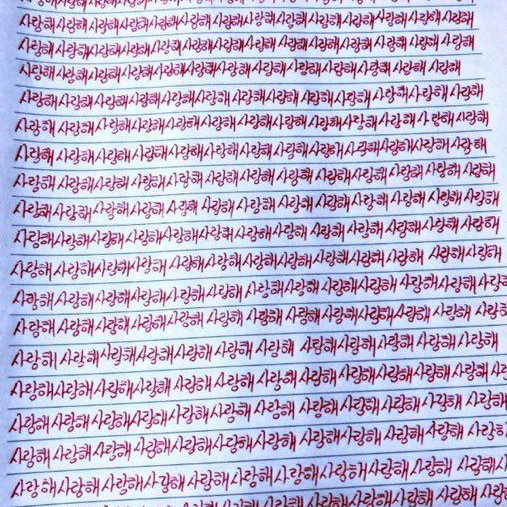 사랑해사랑해사랑해사랑해사랑해사랑해사랑해사랑해사랑해사랑해사랑해사랑해사랑해
사랑해사랑해사랑해사랑해사랑해사랑해사랑해사랑해사랑해사랑해 사랑해 사랑해 사랑해
사랑해 사랑해사랑해사랑해사랑해사랑해사랑해사랑해사랑해사랑해사랑해사랑해
사랑해사랑해사랑해사랑해사랑해사랑해 사랑해사랑해 사랑해사랑해 사랑해사랑해 사랑해
사랑해 사랑해 사랑해사랑해사랑해 사랑해 사랑해사랑해 사랑해사랑해사랑해 사랑해사랑해
사랑해 사랑해사랑해 사랑해사랑해사랑해사랑해 사랑해사랑해 사랑해사랑해사랑해 사랑해
사랑해 사랑해사랑해 사랑해사랑해 사랑해 사랑해 사랑해 사랑해사랑해 사랑해 사랑해 사랑해
사랑해사랑해사랑해사랑해 사랑해 사랑해 사랑해 사랑해 사랑해사랑해 사랑해 사랑해 사랑해
사랑해사랑해사랑해 사랑해사랑해사랑해 사랑해사랑해 사랑해 사랑해 사랑해사랑해 사랑해
사랑해 사랑해사랑해사랑해 사랑해사랑해사랑해사랑해사랑해사랑해 사랑해 사랑해사랑해
사랑해 사랑해사랑해사랑해사랑해사랑해 사랑해사랑해 사랑해사랑해 사랑해사랑해사랑해
사랑해 사랑해사랑해 사랑해사랑해 사랑해 사랑해 사랑해 사랑해사랑해사랑해 사랑해
사랑해 사랑해 사랑해사랑해사랑해 사랑해 사랑해 사랑해사랑해 사랑해 사랑해 사랑해
사랑해사랑해사랑해사랑해 사랑해 사랑해 사랑해 사랑해사랑해사랑해 사랑해 사랑해
사랑해 사랑해 사랑해사랑해사랑해사랑해 사랑해 사랑해사랑해 사랑해 사랑해 사랑해
사랑해 사랑해 사랑해 사랑해사랑해사랑해사랑해 사랑해사랑해 사랑해 사랑해 사랑해
사랑해사랑해 사랑해사랑해 사랑해 사랑해사랑해 사랑해사랑해사랑해 사랑해